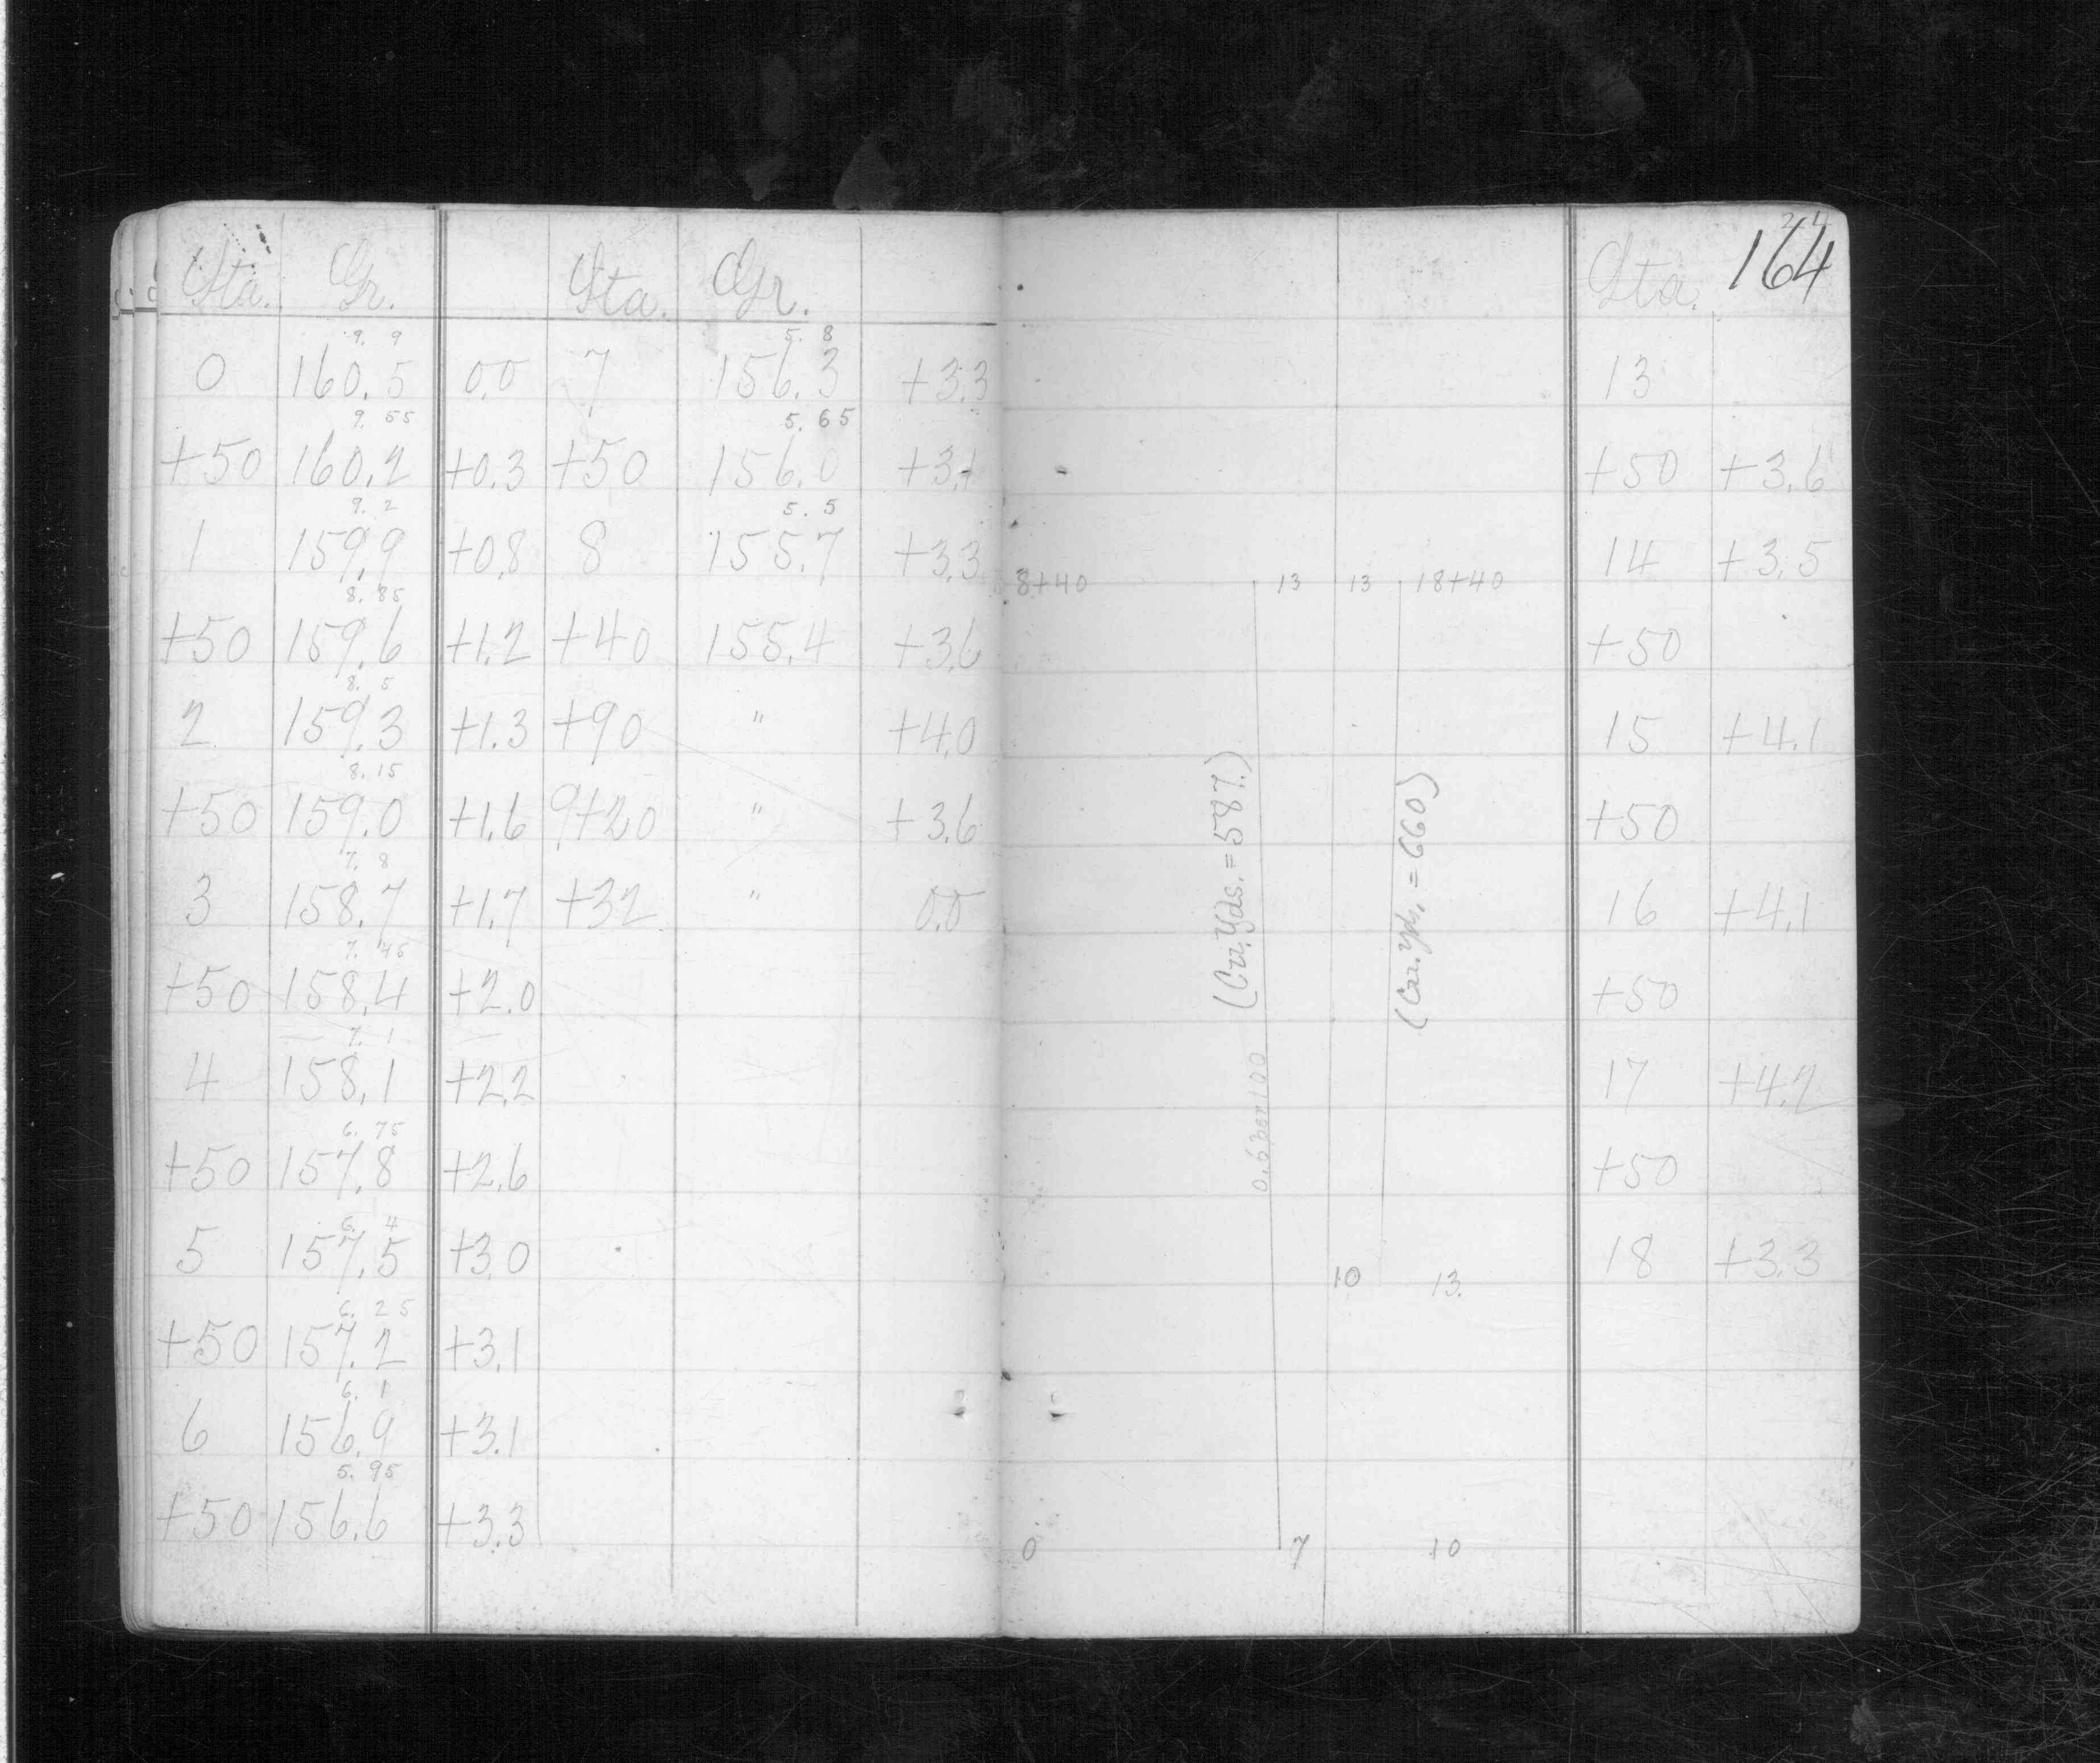 Sta. Gr. Sta. Gr.
9. 9 5. 8
0 160.5 0.0 7 156.3 +3.3
9. 55 5. 65
+50 160.2 +0.3 +50 156.0 +3.1
9. 2 5. 5
1 159.9 +0.8 8 155.7 +3.3
8. 85
+50 159.6 +1.2 +40 155.4 +3.6
8. 5
2 159.3 +1.3 +90 " +4.0
8. 15
+50 159.0 +1.6 9+20 " +3.6
7. 8
3 158.7 +1.7 +32 " 0.0
7. 45
+50 158.4 +2.0
7. 1
4 158.1 +2.2
6. 75
+50 157.8 +2.6
6. 4
5 157.5 +3.0
6. 25
+50 157.2 +3.1
6. 1
6 156.9 +3.1
5. 95
+50 156.6 +3.3
164
Sta.
13
+50 +3.6
14 +3.5
+50
15 +4.1
+50
16 +4.1
+50
17 +4.2
+50
18 +3.3
8+40 13 13 18+40
(Cu. Yds. = 587.)
(Cu. Yds. = 660)
0.6 per 100
10 13.
0 7 10